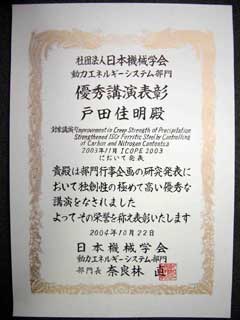 社団法人日本機械学会
動力エネルギーシステム部門
優秀講演表彰
戸田佳明殿
対象講演 Improvement in Creep Strength of Precipitation
Strengthened 15Cr Ferritic Steel by Controlling
of Carbon and Nitrogen Contents
2003年11月 ICOPE 2003
において発表
貴殿は部門行事企画の研究発表に
おいて独創性の極めて高い優秀な
講演をなされました
よってその栄誉を称え表彰いたします
2004年10月22日
日本機械学会
動力エネルギーシステム部門
部門長 奈良林 直